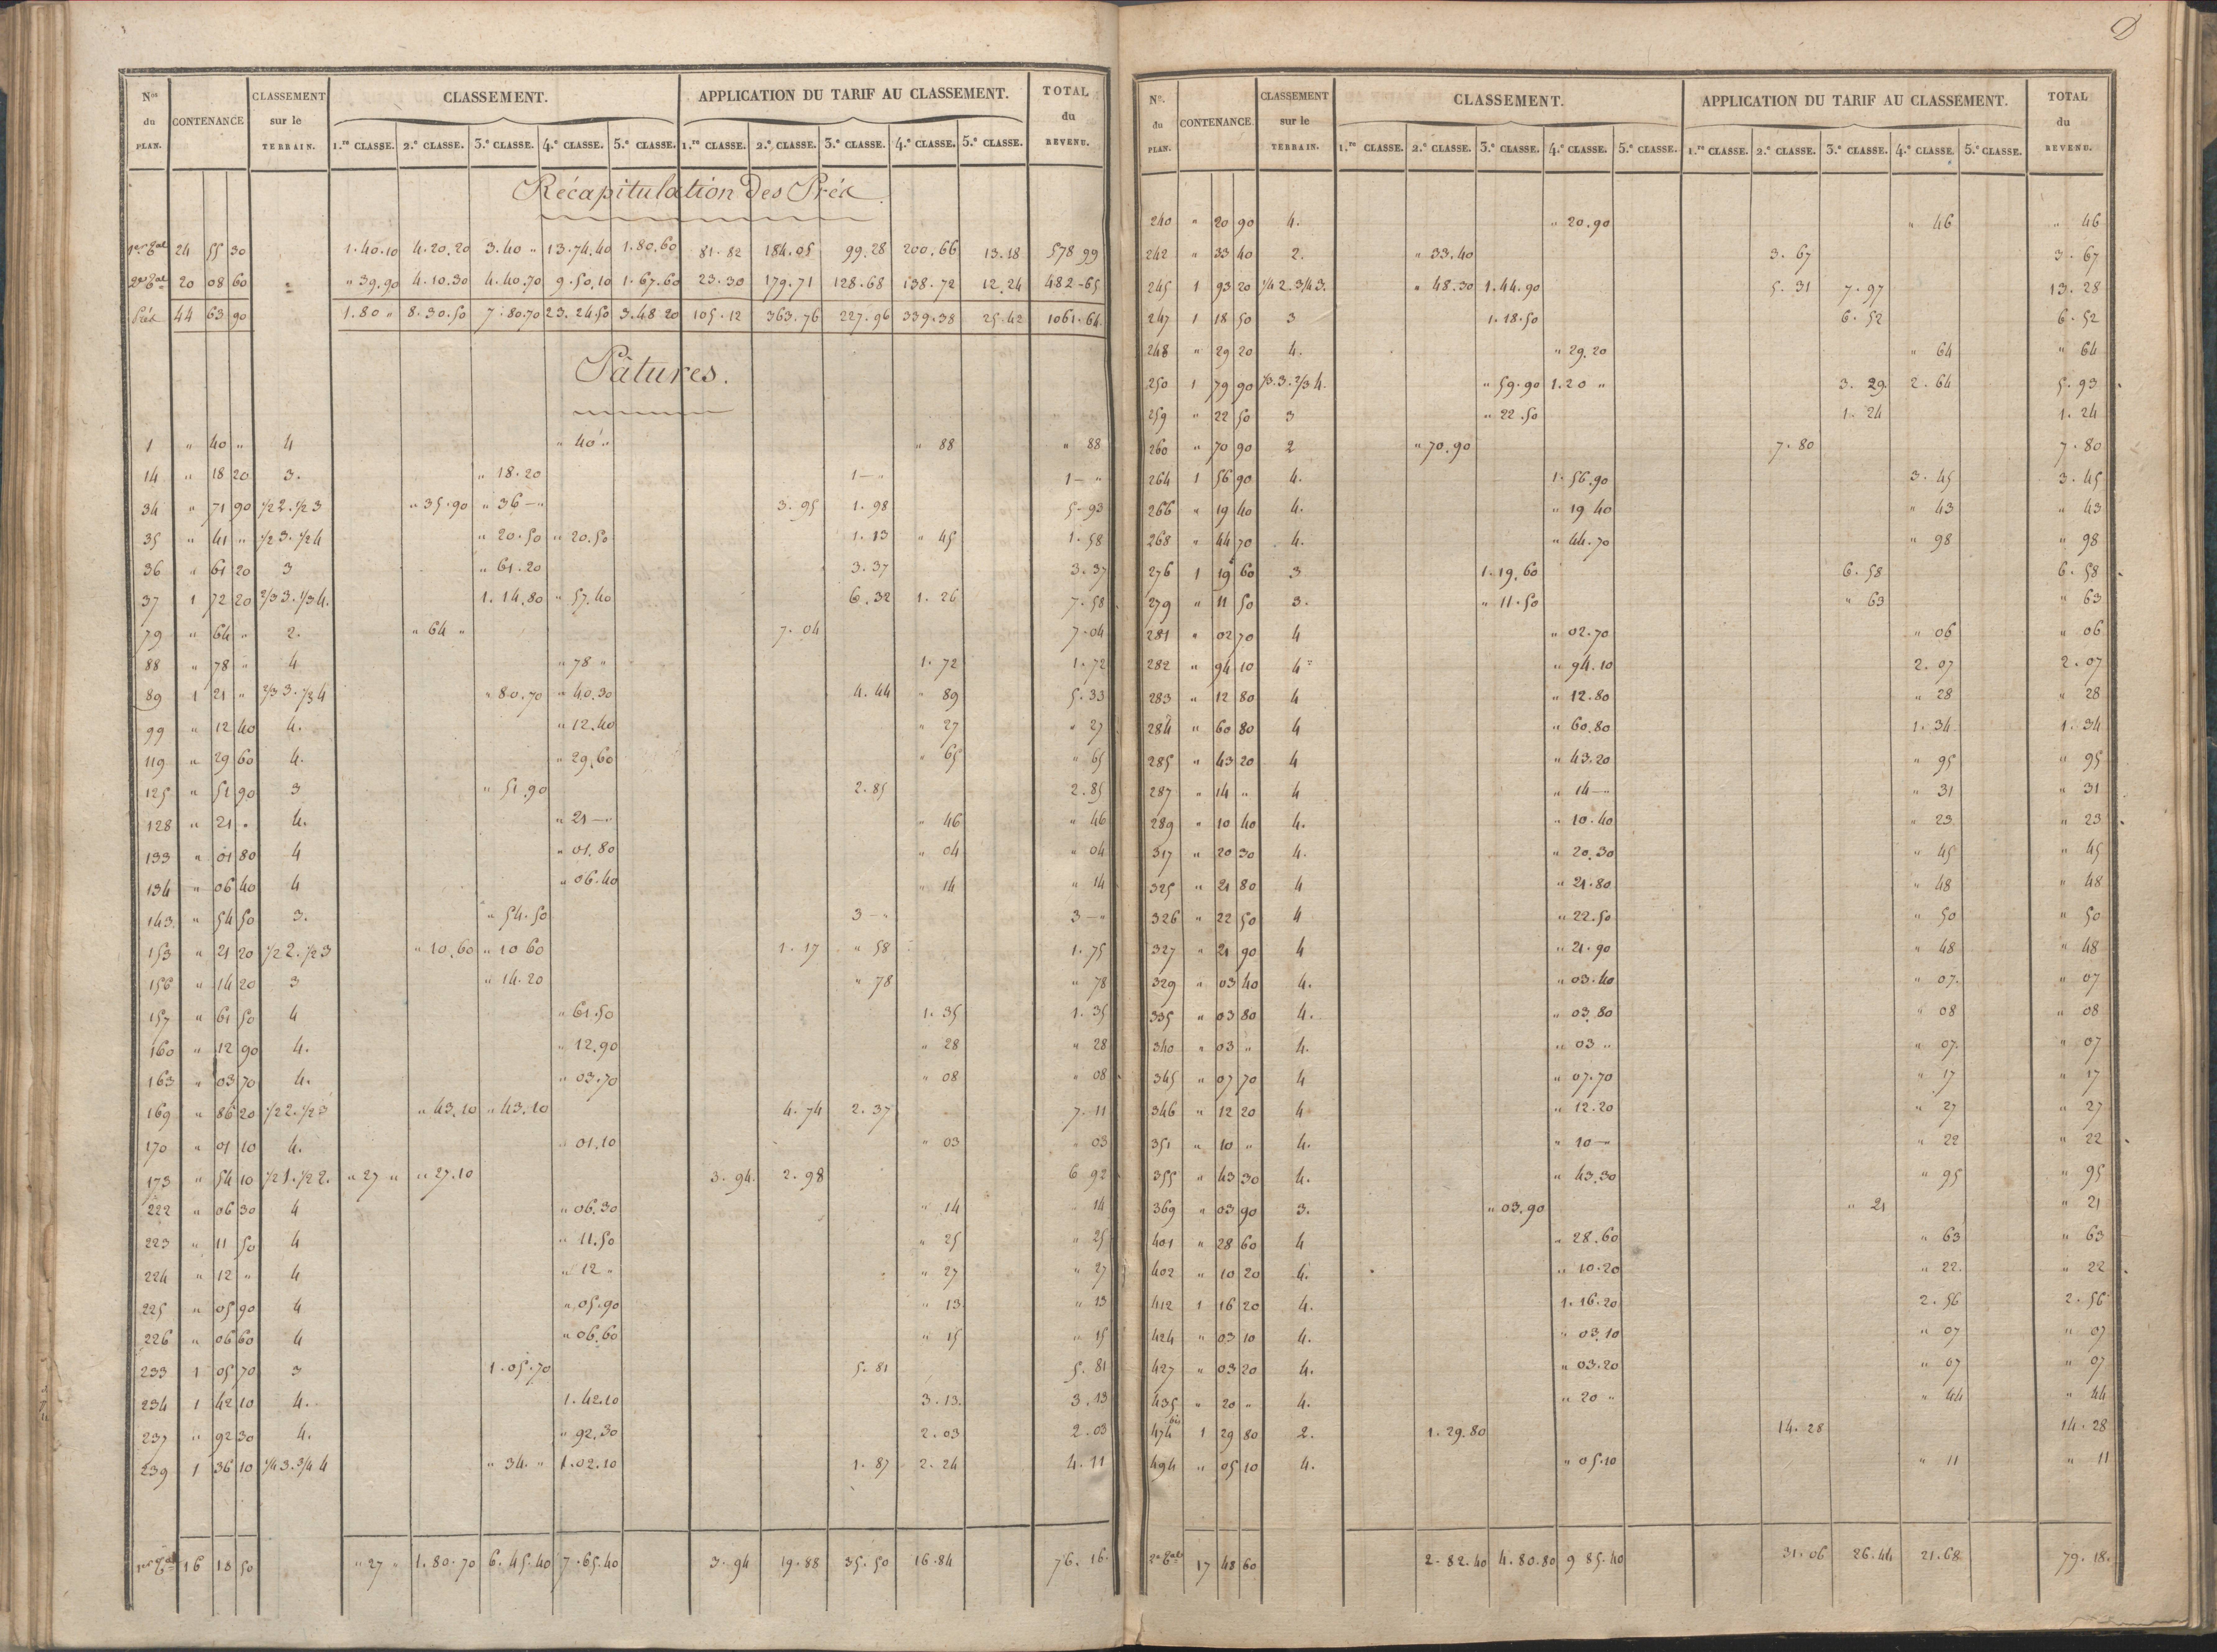 Nos du PLAN. CONTENANCE CLASSEMENT sur le TERRAIN. CLASSEMENT. APPLICATION DU TARIF AU CLASSEMENT. TOTAL du REVENU.
1.re CLASSE. 2.e CLASSE. 3.e CLASSE. 4.e CLASSE. 5.e CLASSE. 1.re CLASSE. 2.e CLASSE. 3.e CLASSE. 4.e CLASSE. 5.e CLASSE.
Récapitulation Des Prés.
1er Tal 24 55 30 1.40.10 4.20.20 3.40 " 13.74.40 1.80.60 81.82 184.05 99.28 200.66 13.18 578 99
2e Tal 20 08 60 " 39.90 4.10.30 4.40.70 9.50.10 1.67.60 23.30 179.71 128.68 138.72 12.24 482-65
Prés 44 63 90 1.80 " 8.30.50 7.80.70 23.24.50 3.48 20 105.12 363.76 227.96 339.38 25.42 1061.64
Pâtures.
1 " 40 " 4 " 40 " " 88 " 88
14 " 18 20 3. " 18.20 1 — " 1 — "
34 " 71 90 1/2 2. 1/2 3 " 35.90 " 36 — " 3.95 1.98 5-93
35 " 41 " 1/2 3. 1/2 4 " 20.50 " 20.50 1.13 " 45 1.58
36 " 61 20 3 " 61.20 3.37 3.37
37 1 72 20 2/3 3. 1/3 4. 1.14.80 " 57.40 6.32 1.26 7.58
79 " 64 " 2. " 64 " 7.04 7.04
88 " 78 " 4 " 78 " 1.72 1.72
89 1 21 " 2/3 3. 1/3 4 " 80.70 " 40.30 4.44 " 89 5.33
99 " 12 40 4. " 12.40 " 27 " 27
119 " 29 60 4. " 29.60 " 65 " 65
125 " 51 90 3 " 51.90 2.85 2.85
128 " 21 " 4. " 21 — " " 46 " 46
133 " 01 80 4 " 01.80 " 04 " 04
134 " 06 40 4 " 06.40 " 14 " 14
143. " 54 50 3. " 54.50 3 — " 3 — "
153 " 21 20 1/2 2. 1/2 3 " 10.60 " 10 60 1.17 " 58 1.75
156 " 14 20 3 " 14.20 " 78 " 78
157 " 61 50 4 " 61.50 1.35 1.35
160 " 12 90 4. " 12.90 " 28 " 28
163 " 03 70 4. " 03.70 " 08 " 08
169 " 86 20 1/2 2. 1/2 3 " 43.10 " 43.10 4.74 2.37 7.11
170 " 01 10 4. " 01.10 " 03 " 03
173 " 54 10 1/2 1. 1/2 2. " 27 " " 27.10 3.94 2.98 6 92
222 " 06 30 4 " 06.30 " 14 " 14
223 " 11 50 4 " 11.50 " 25 " 25
224 " 12 " 4 " 12 " " 27 " 27
225 " 05 90 4 " 05.90 " 13 " 13
226 " 06 60 4 " 06.60 " 15 " 15
233 1 05 70 3 1.05.70 5.81 5.81
234 1 42 10 4. 1.42.10 3.13. 3.13
237 " 92 30 4. " 92.30 2.03 2.03
239 1 36 10 1/4 3. 3/4 4 " 34. " 1.02.10 1.87 2.24 4.11
1er Tal 16 18 50 " 27 " 1.80.70 6.45.40 7.65.40 3.94 19.88 35.50 16.84 76.16
D
No. du PLAN. CONTENANCE. CLASSEMENT sur le TERRAIN. CLASSEMENT. APPLICATION DU TARIF AU CLASSEMENT. TOTAL du REVENU.
1.re CLASSE. 2.e CLASSE. 3.e CLASSE. 4.e CLASSE. 5.e CLASSE. 1.re CLASSE. 2.e CLASSE. 3.e CLASSE. 4.e CLASSE. 5.e CLASSE.
240 " 20 90 4. " 20.90 " 46 " 46
242 " 33 40 2. " 33.40 3.67 3.67
245 1 93 20 1/4 2. 3/4 3. " 48.30 1.44.90 5.31 7.97 13.28
247 1 18 50 3 1.18.50 6.52 6.52
248 " 29 20 4. " 29.20 " 64 " 64
250 1 79 90 1/3 3. 2/3 4. " 59.90 1.20 " 3.29 2.64 5.93
259 " 22 50 3 " 22.50 1.24 1.24
260 " 70 90 2 " 70.90 7.80 7.80
264 1 56 90 4. 1.56.90 3.45 3.45
266 " 19 40 4. " 19 40 " 43 " 43
268 " 44 70 4. " 44.70 " 98 " 98
276 1 19 60 3 1.19.60 6.58 6.58
279 " 11 50 3. " 11.50 " 63 " 63
281 " 02 70 4 " 02.70 " 06 " 06
282 " 94 10 4 " 94.10 2.07 2.07
283 " 12 80 4 " 12.80 " 28 " 28
284 " 60 80 4 " 60.80 1.34 1.34
285 " 43 20 4 " 43.20 " 95 " 95
287 " 14 " 4 " 14 — " " 31 " 31
289 " 10 40 4. " 10.40 " 23 " 23
317 " 20 30 4. " 20.30 " 45 " 45
325 " 21 80 4 " 21.80 " 48 " 48
326 " 22 50 4 " 22.50 " 50 " 50
327 " 21 90 4 " 21.90 " 48 " 48
329 " 03 40 4. " 03.40 " 07. " 07
335 " 03 80 4. " 03.80 " 08 " 08
340 " 03 " 4. " 03 " " 07. " 07
345 " 07 70 4 " 07.70 " 17 " 17
346 " 12 20 4 " 12.20 " 27 " 27
351 " 10 " 4. " 10 — " " 22 " 22
355 " 43 30 4. " 43.30 " 95 " 95
369 " 03 90 3. " 03.90 " 21 " 21
401 " 28 60 4 " 28.60 " 63 " 63
402 " 10 20 4. " 10.20 " 22. " 22
412 1 16 20 4. 1.16.20 2.56 2.56
424 " 03 10 4. " 03.10 " 07 " 07
427 " 03 20 4. " 03.20 " 07 " 07
435 " 20 " 4. " 20 " " 44 " 44
474 bis 1 29 80 2. 1.29.80 14.28 14.28
494 " 05 10 4. " 05.10 " 11 " 11
2e Tal 17 48 60 2.82.40 4.80.80 9 85.40 31.06 26.44 21.68 79.18.